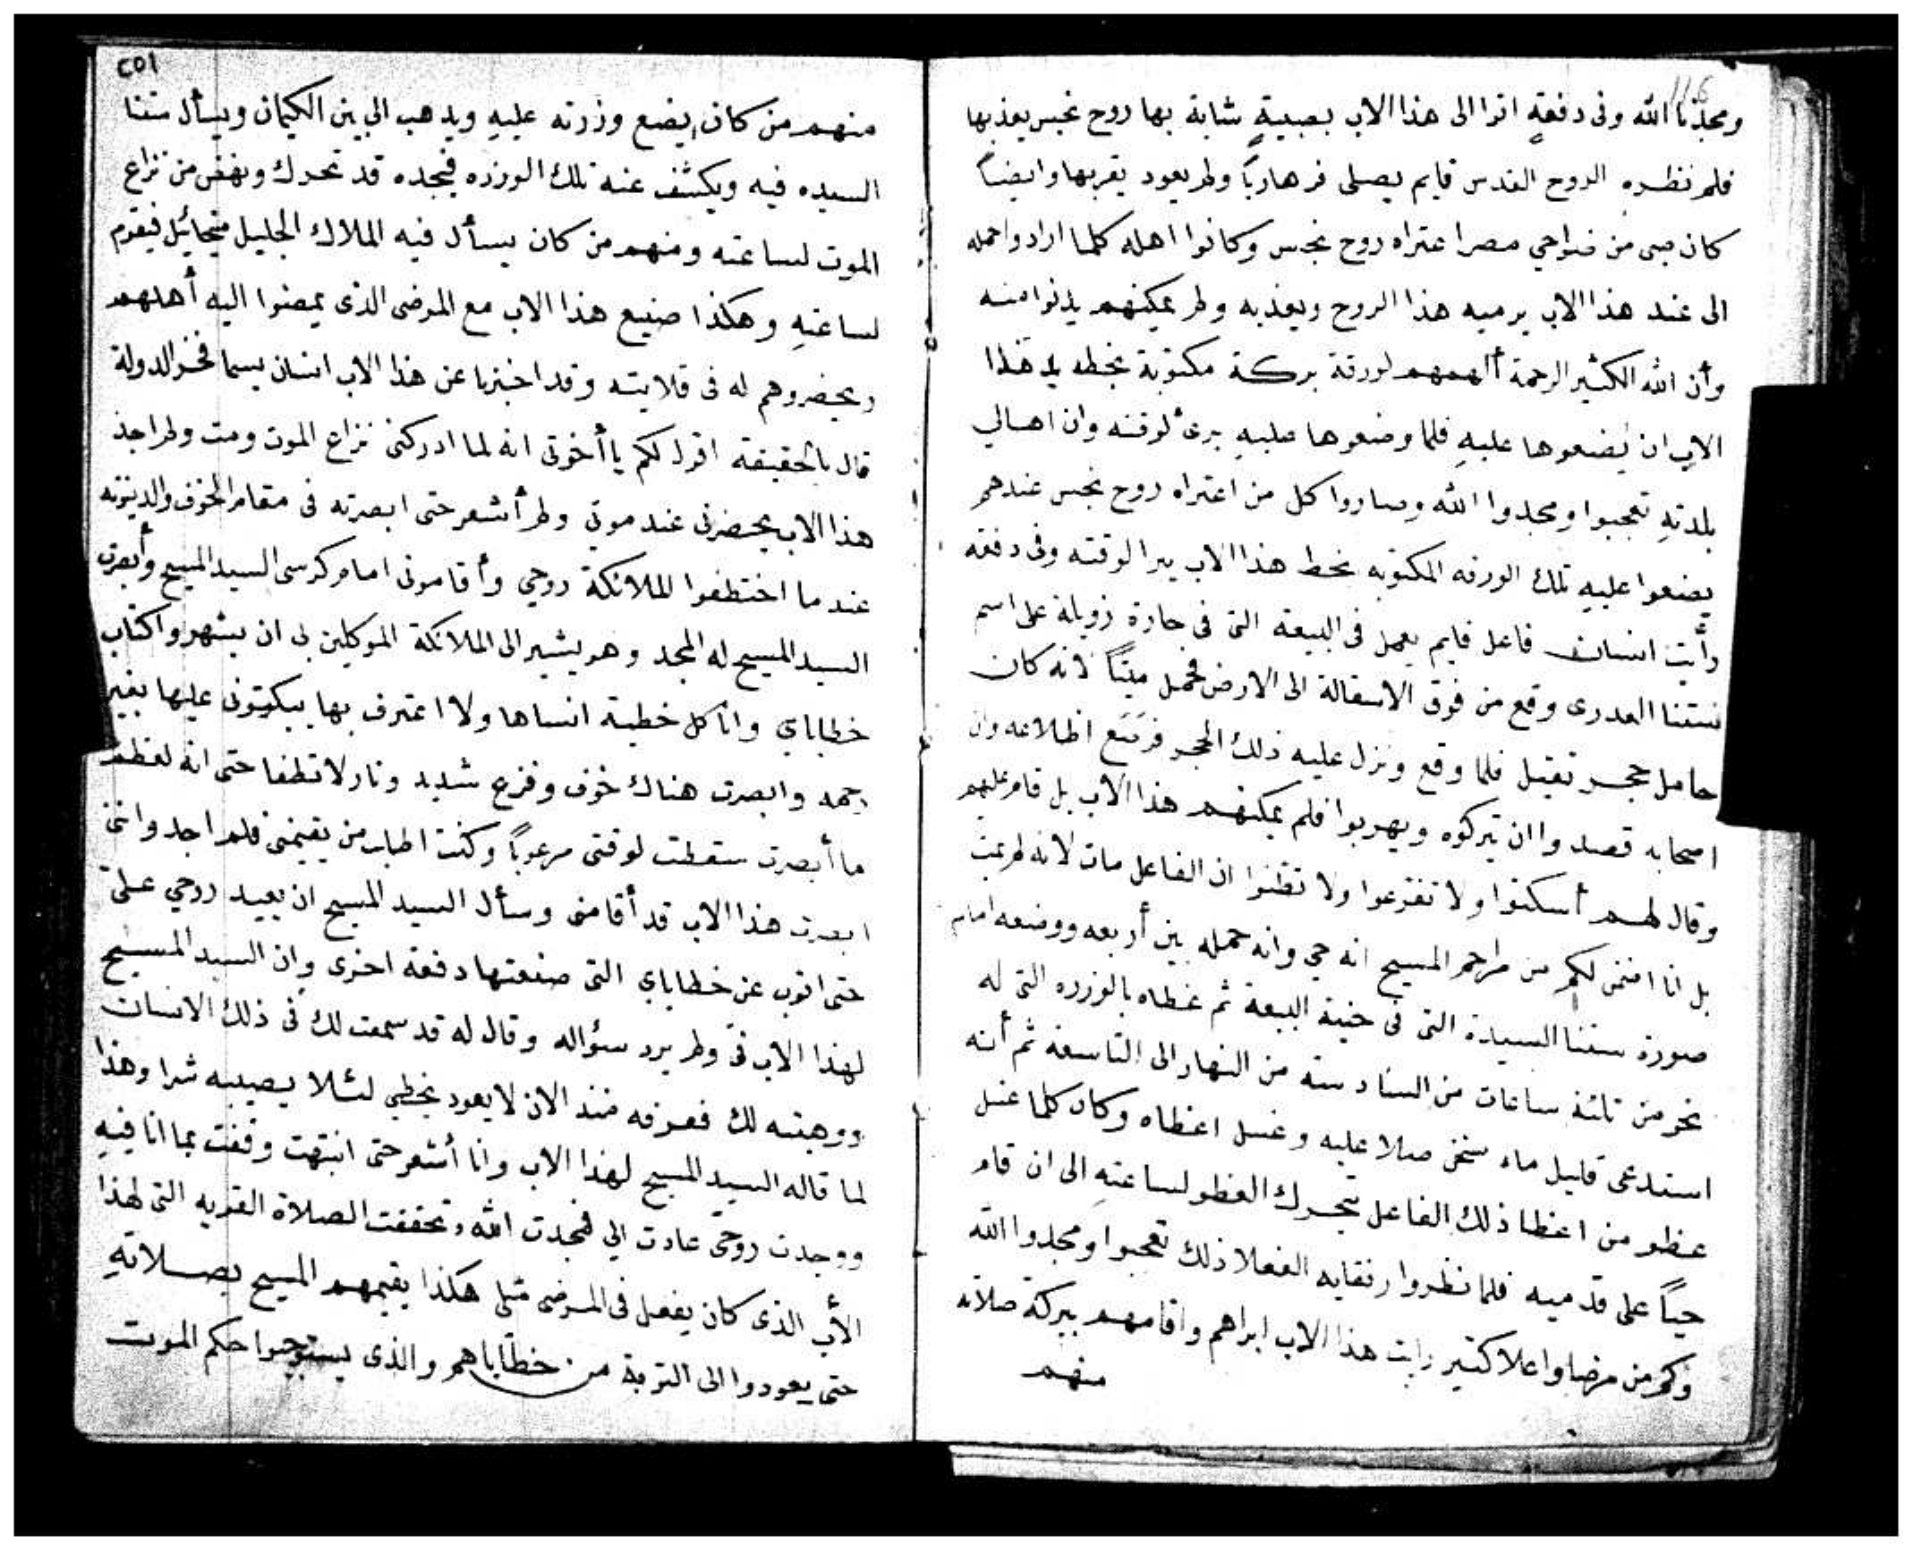 ومجدنا الله وفى دفعةٍ اتوا الى هذا الاب بصبيةٍ شابة بها روح نجس يعذبها
فلم نظره الروح القدس قايم يصلى فر هارباً ولم يعود يقربها وايضاً
كان صبى من ضواحي مصر اعتراه روح نجس وكانوا اهله كلما ارادوا حمله
الى عند هذا الاب يرميه هذا الروح ويعذبه ولم يمكنهم يدنوا منه
وأن الله الكثير الرحمة ألهمهم لورقة بركة مكتوبة بخط يد هذا
الاب ان يضعوها عليهِ فلما وضعوها عليهِ برئ لوقته وان اهالي
بلدتهِ تعجبوا ومجدوا الله وصاروا كل من اعتراه روح نجس عندهم
يضعوا عليهِ تلك الورقه المكتوبه بخط هذا الاب يبرا لوقته وفى دفعه
رأيت انسان فاعل قايم يعمل فى البيعة التى فى حارة زويلة على اسم
ستنا العدرى وقع من فوق الاسقالة الى الارض فحمل ميتاً لانه كان
حامل حجر تقيل فلما وقع ونزل عليه ذلك الحجر اظلاعه وان
اصحابه قصدوا ان يتركوه ويهربوا فلم يمكنهم هذا الاب بل قام عليهم
وقال لهم أسكتوا ولا تفزعوا ولا تظنوا ان الفاعل مات لانه لم يمت
بل انا اضمن لكم من مراحم المسيح انه حي وانه حمله بين أربعه ووضعه امام
صورة ستنا السيدة التى فى حنية البيعة ثم غطاه بالوزره التى له
نحو من تلتة ساعات من السادسه من النهار الى التاسعة ثم أنه
استدعى قليل ماء سخن صلا عليه وغسل اعظاه وكان كلما غسل
عظو من اعظا ذلك الفاعل يتحرك العظو لساعتهِ الى ان قام
حياً على قدميه فلما نظروا رفقايه الفعلا ذلك تعجبوا ومجدوا الله
وكم من مرضا واعلا كتير رايت هذا الاب ابراهم واقامهم ببركة صلاته
منهم
منهم من كان يضع وزرته عليهِ ويدهب الى بين الكيمان ويسأل ستنا
السيده فيه ويكشف عنه تلك الوزره فيجده قد تحرك ونهض من نزاع
الموت لساعته ومنهم من كان يسأل فيه الملاك الجليل ميخائيل فيقوم
لساعتهِ وهكذا صنيع هذا الاب مع المرضى الذى يمضوا اليه أهلهم
ويحضروهم له فى قلايته وقد اخبرنا عن هذا الاب انسان يسما فخر الدولة
قال بالحقيقة اقول لكم يا أخوتى انه لما ادركنى نزاع الموت ومت ولم اجد
هذا الاب يحضرنى عند موتي ولم أشعر حتى ابصرته فى مقام الخوف والدينونه
عند ما اختطفوا الملائكة روحي وأقامونى امام كرسى السيد المسيح وأبصرت
السيد المسيح له المجد وهو يشير الى الملائكة الموكلين بى ان يشهروا كتاب
خطاياي وانا كل خطية انساها ولا اعترف بها يبكتونى عليها بغير
رحمه وابصرت هناك خوف وفزع شديد ونار لا تطفا حتى انه لعظم
ما أبصرت سقطت لوقتى مرعوباً وكنت اطلب من يقيمنى فلم اجد واننى
ابصرت هذا الاب قد أقامنى وسأل السيد المسيح ان يعيد روحي علىّ
حتى اتوب عن خطاياي التى صنعتها دفعة اخرى وان السيد المسيح
لهذا الاب فيَّ ولم يرد سؤاله وقال له قد سمعت لك فى ذلك الانسان
ووهبته لك فعرفه منذ الان لا يعود يخطى لئلا يصيبه شرا وهذا
لما قاله السيد المسيح لهذا الاب وانا أشعر حتى انتهت وقفت بما انا فيهِ
ووجدت روحى عادت الي فمجدت الله وتحققت الصلاة القويه التى لهذا
الأب الذى كان يفعل فى المرضى متلى هكذا يقيمهم المسيح بصلاتهِ
حتى يعودوا الى التوبة من خطاياهم والذى يستوجبوا حكم الموت